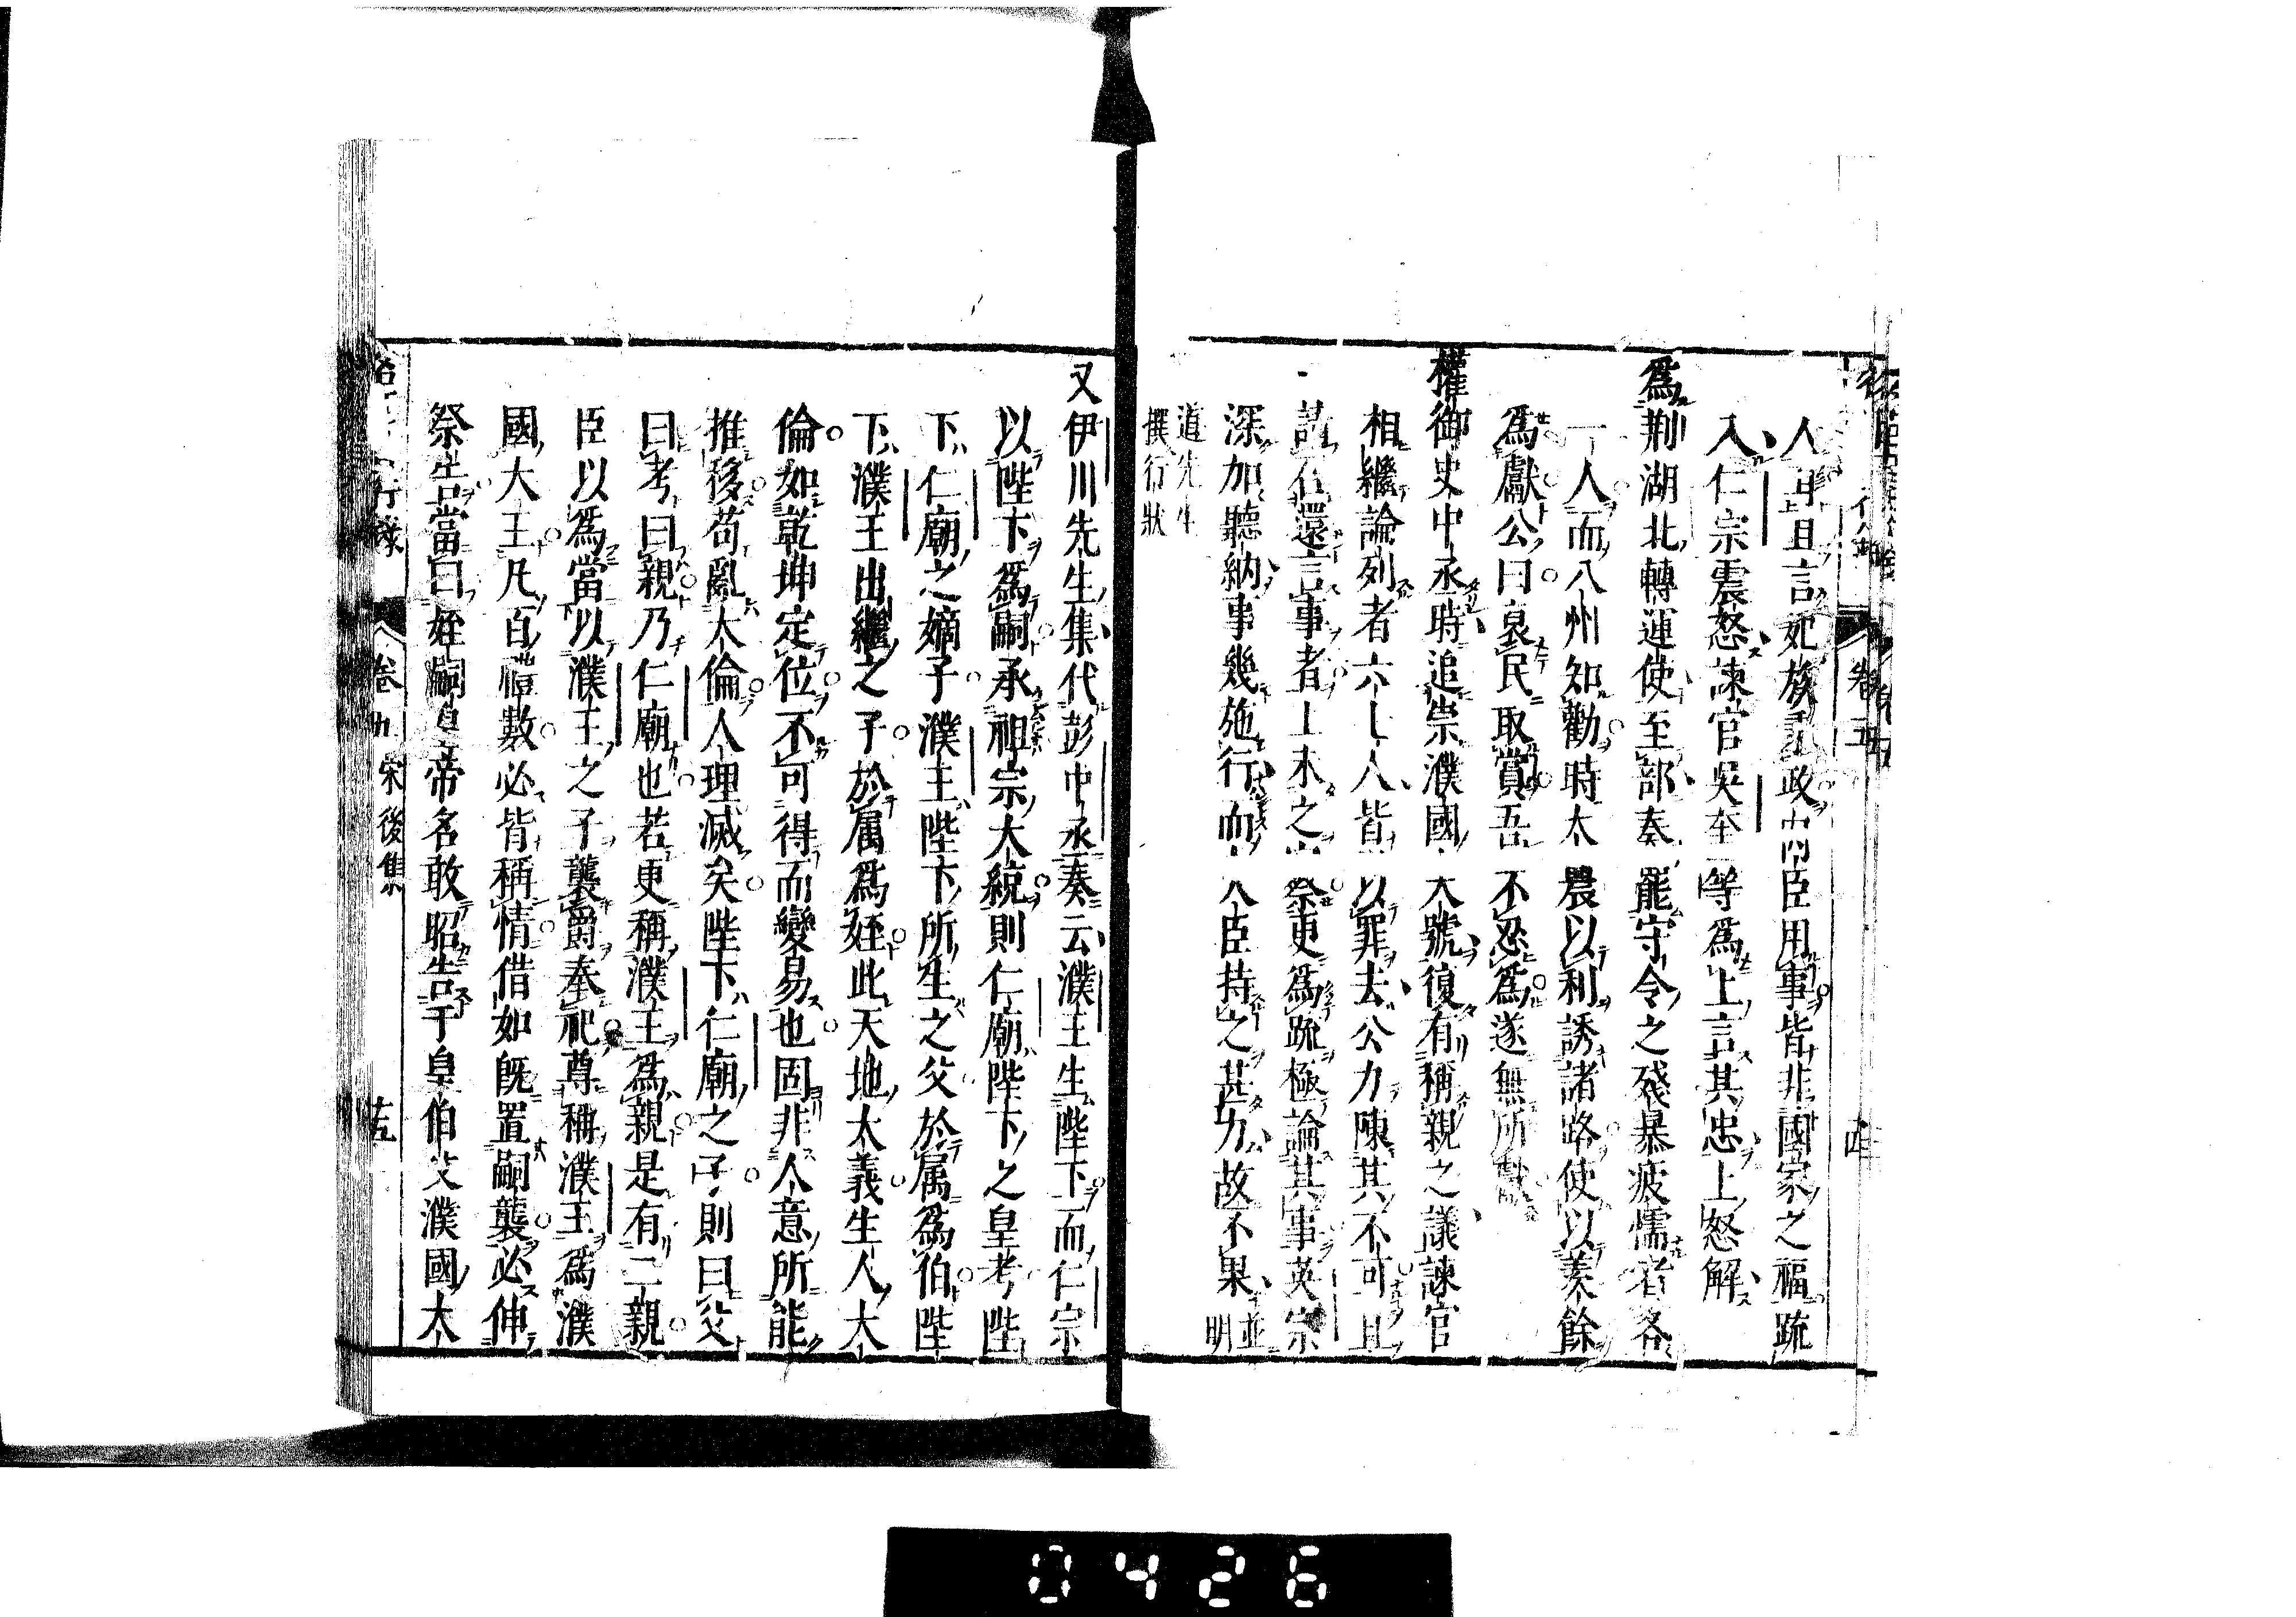 人自且言妃族秉政内臣用事皆非國家之福疏
入仁宗震怒諫官吳奎等爲上言其忠上怒解
爲荆湖北轉運使至部奏罷守令之殘暴疲懦者各
一人而八州知勸時太農以利誘諸路使以羨餘
爲獻公曰裒民取賞吾不忍爲遂無所獻
權御史中丞時追崇濮國大號復有稱親之議諫官
相繼論列者六七人皆以罪去公力陳其不可且
請召還言事者上未之察更爲疏極論其事英宗
深加聽納事幾施行而大臣持之甚力故不果並明
道先生
撰行狀
又伊川先生集代彭中丞奏云濮王生陛下而仁宗
以陛下爲嗣承祖宗大統則仁廟陛下之皇考陛
下仁廟之嫡子濮王陛下所生之父於属爲伯陛
下濮王出繼之子於属爲姪此天地大義生人大
倫如乾坤定位不可得而變易也固非人意所能
推移苟亂大倫人理滅矣陛下仁廟之子則曰父
曰考曰親乃仁廟也若更稱濮王爲親是有二親
臣以爲當以濮王之子襲爵奉祀尊稱濮王爲濮
國大王凡百禮數必皆稱情借如既置嗣襲必伸
祭告當曰姪嗣皇帝名敢昭告于皇伯父濮國太
行錄 卷九 宋後集 十五
卷五
0426